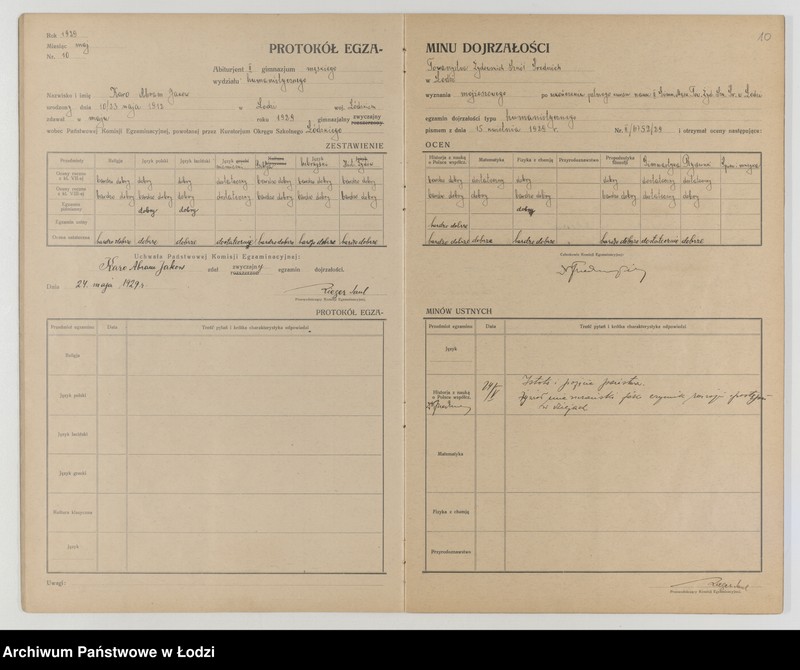 Rok 1929
Miesiąc maj
Nr. 10
PROTOKÓŁ EGZA-
Abiturjent I gimnazjum męskiego
wydziału humanistycznego
Nazwisko i imię Karo Abram
urodzony dnia 10/23 maja w Łodzi woj. Łódzkim
zdawał w maju roku 1929 gimnazjalny zwyczajny
wobec Państwowej Komisji Egzaminacyjnej, powołanej przez Kuratorjum Okręgu Szkolnego Łódzkiego
ZESTAWIENIE
Przedmioty Religja Język polski Język łaciński Język
Oceny roczne z kl. VII-ej bardzo dobry dobry dobry dostateczny bardzo dobry bardzo dobry bardzo dobry
Oceny roczne z kl. VIII-ej bardzo dobry bardzo dobry dobry dostateczny bardzo dobry bardzo dobry bardzo dobry
Egzamin piśmienny dobry dobry
Egzamin ustny
Ocena ostateczna bardzo dobrze dobrze dobrze dostatecznie bardzo dobrze bardzo dobrze bardzo dobrze
Uchwała Państwowej Komisji Egzaminacyjnej:
Karo Abram zdał zwyczajny egzamin dojrzałości.
Dnia 24 maja 1929 r.
Przewodniczący Komisji Egzaminacyjnej.
PROTOKÓŁ EGZA-
Przedmiot egzaminu Data Treść pytań i krótka charakterystyka odpowiedzi
Religja
Język polski
Język łaciński
Język grecki
Kultura klasyczna
Język
Uwagi:
10
MINU DOJRZAŁOŚCI
Towarzystwa Żydowskich Szkół Średnich
w Łodzi
wyznania mojżeszowego po ukończeniu
egzamin dojrzałości typu humanistycznego
pismem z dnia 15 kwietnia 1929 r. Nr. i otrzymał oceny następujące:
OCEN
Historja z nauką o Polsce współcz. Matematyka Fizyka z chemją Przyrodoznawstwo Propedeutyka filozofji Gimnastyka
bardzo dobry dostateczny dobry dobry dostateczny
bardzo dobry dobry bardzo dobry bardzo dobry dostateczny dobry
dobry
bardzo dobrze
bardzo dobrze dobrze bardzo dobrze bardzo dobrze dostatecznie dobrze
Członkowie Komisji Egzaminacyjnej:
MINÓW USTNYCH
Przedmiot egzaminu Data Treść pytań i krótka charakterystyka odpowiedzi
Język
Historja z nauką o Polsce współcz. 24/V Istota i pojęcie państwa.
w dziejach
Matematyka
Fizyka z chemją
Przyrodoznawstwo
Przewodniczący Komisji Egzaminacyjnej.
Archiwum Państwowe w Łodzi